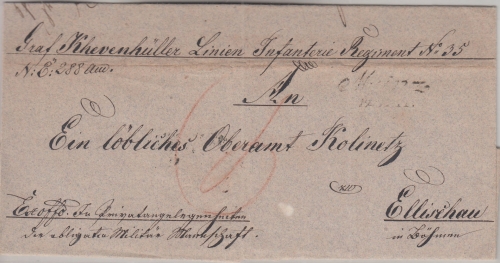 Graf Khevenhüller Linien Infanterie Regiment No. 35
N: E: 288 Aud.
An
Ein löbliches Oberamt Kolinetz
zu
Ellischau
in Böhmen
Exoffo. In Privatangelegenheiten
der obligaten Militär Mannschaft.